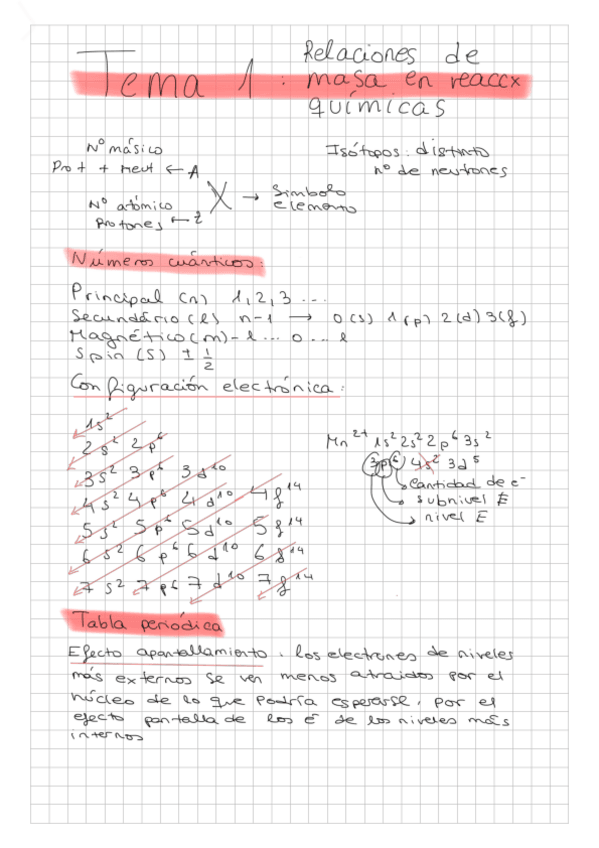 Tema 1: Relaciones de
masa en reaccx
químicas
Nº másico
Prot + neut ← A
Nº atómico
Protones ← Z
X → Simbolo
elemento
Isótopos: distinto
nº de neutrones
Números cuánticos:
Principal (n) 1, 2, 3 ...
Secundário (l) n-1 → 0(s) 1(p) 2(d) 3(f)
Magnético (m) -l ... 0 ... l
Spin (S) ± 1/2
Configuración electrónica:
1s²
2s² 2p⁶
3s² 3p⁶ 3d¹⁰
4s² 4p⁶ 4d¹⁰ 4f¹⁴
5s² 5p⁶ 5d¹⁰ 5f¹⁴
6s² 6p⁶ 6d¹⁰ 6f¹⁴
7s² 7p⁶ 7d¹⁰ 7f¹⁴
Mn²⁺ 1s² 2s² 2p⁶ 3s²
3p⁶ 4s² 3d⁵
cantidad de e⁻
subnivel E
nivel E
Tabla periódica
Efecto apantallamiento: los electrones de niveles
más externos se ven menos atraidos por el
núcleo de lo que podría esperarse, por el
efecto pantalla de los é de los niveles más
internos